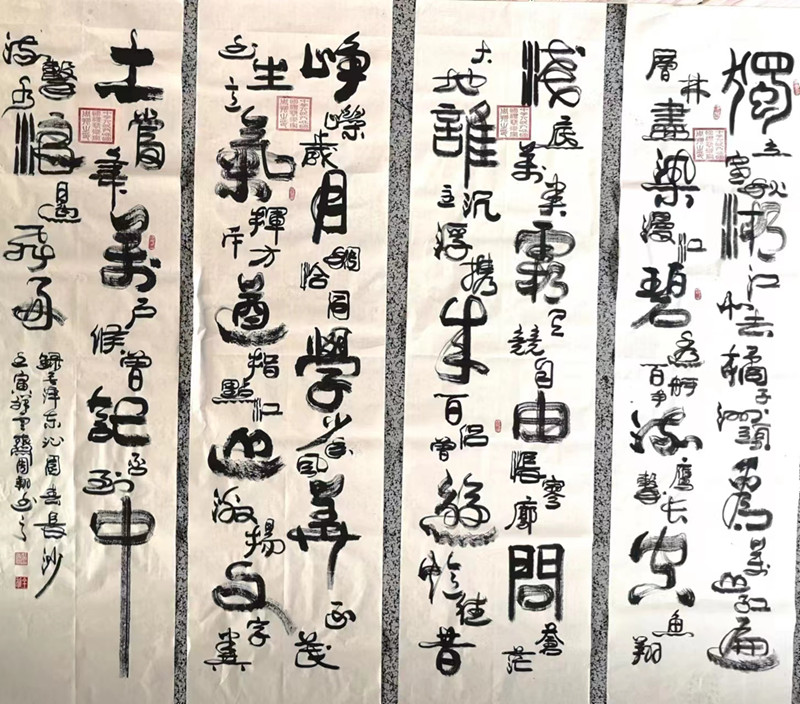 獨立寒秋湘江北去橘子洲頭看萬山红遍
層林盡染漫江碧透百舸争流鷹擊長空魚翔
淺底萬类霜天競自由悵寥廓問蒼茫
大地誰主沉浮携來百侣曾遊憶往昔
崢嶸歲月稠恰同學少年風華正茂
書生意氣揮斥方遒指點江山激揚文字糞
土當年萬户侯曾記否到中
流擊水浪遏飛舟
錄毛澤東沁園春長沙
壬寅